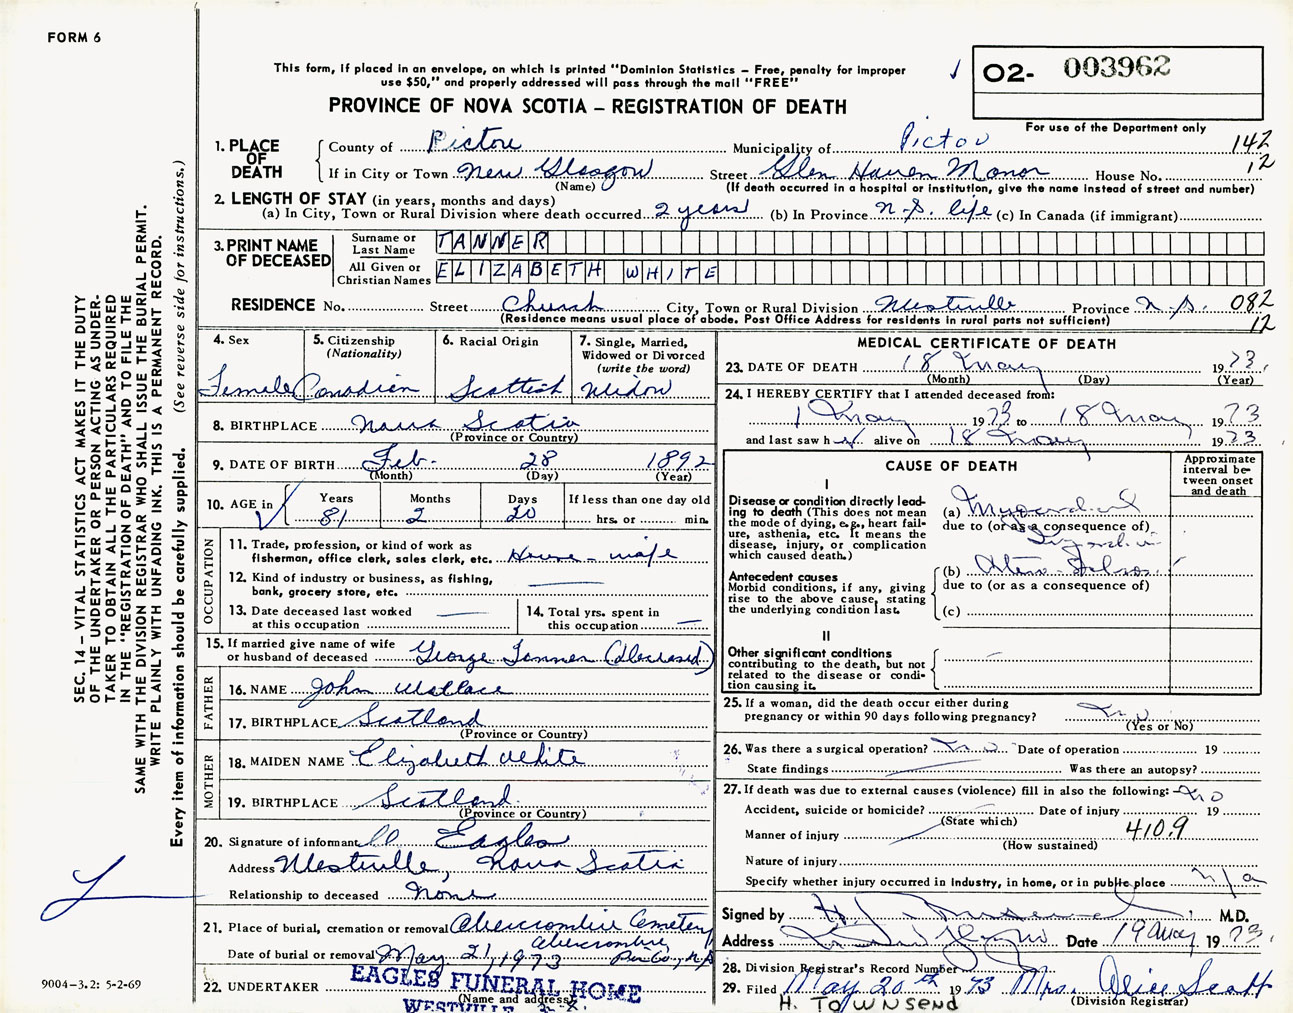 FORM 6
SEC. 14 – VITAL STATISTICS ACT MAKES IT THE DUTY
OF THE UNDERTAKER OR PERSON ACTING AS UNDER-
TAKER TO OBTAIN ALL THE PARTICULARS REQUIRED
IN THE "REGISTRATION OF DEATH" AND TO FILE THE
SAME WITH THE DIVISION REGISTRAR WHO SHALL ISSUE THE BURIAL PERMIT.
WRITE PLAINLY WITH UNFADING INK. THIS IS A PERMANENT RECORD.
Every item of information should be carefully supplied. (See reverse side for instructions.)
This form, if placed in an envelope, on which is printed "Dominion Statistics – Free, penalty for improper
use $50," and properly addressed will pass through the mail "FREE"
O2- 003962
PROVINCE OF NOVA SCOTIA – REGISTRATION OF DEATH
For use of the Department only
1. PLACE OF DEATH County of Pictou Municipality of Pictou 142
If in City or Town New Glasgow Street Glen Haven Manor House No. 12
(Name) (If death occurred in a hospital or institution, give the name instead of street and number)
2. LENGTH OF STAY (in years, months and days)
(a) In City, Town or Rural Division where death occurred 2 years (b) In Province N.S. life (c) In Canada (if immigrant)
3. PRINT NAME OF DECEASED Surname or Last Name TANNER
All Given or Christian Names ELIZABETH WHITE
RESIDENCE No. Street Church City, Town or Rural Division Westville Province N.S. 082
(Residence means usual place of abode. Post Office Address for residents in rural parts not sufficient) 12
4. Sex Female
5. Citizenship (Nationality) Canadian
6. Racial Origin Scottish
7. Single, Married, Widowed or Divorced (write the word) Widow
8. BIRTHPLACE Nova Scotia
(Province or Country)
9. DATE OF BIRTH Feb. 28 1892
(Month) (Day) (Year)
10. AGE in Years 81 Months 2 Days 20 If less than one day old hrs. or min.
OCCUPATION
11. Trade, profession, or kind of work as fisherman, office clerk, sales clerk, etc. House-wife
12. Kind of industry or business, as fishing, bank, grocery store, etc.
13. Date deceased last worked at this occupation
14. Total yrs. spent in this occupation
15. If married give name of wife or husband of deceased George Tanner (deceased)
FATHER
16. NAME John Wallace
17. BIRTHPLACE Scotland
(Province or Country)
MOTHER
18. MAIDEN NAME Elizabeth White
19. BIRTHPLACE Scotland
(Province or Country)
20. Signature of informant Eagles
Address Westville, Nova Scotia
Relationship to deceased None
21. Place of burial, cremation or removal Abercrombie Cemetery
Abercrombie,
Date of burial or removal May 21, 1973 Pic Co., N.S.
22. UNDERTAKER EAGLES FUNERAL HOME
(Name and address)
WESTVILLE
MEDICAL CERTIFICATE OF DEATH
23. DATE OF DEATH 18 May 1973
(Month) (Day) (Year)
24. I HEREBY CERTIFY that I attended deceased from:
1 May 1973 to 18 May 1973
and last saw her alive on 18 May 1973
CAUSE OF DEATH
Approximate interval between onset and death
I
Disease or condition directly leading to death (This does not mean the mode of dying, e.g., heart failure, asthenia, etc. It means the disease, injury, or complication which caused death.)
(a) Myocardial
due to (or as a consequence of)
Antecedent causes
Morbid conditions, if any, giving rise to the above cause, stating the underlying condition last.
(b)
due to (or as a consequence of)
(c)
II
Other significant conditions
contributing to the death, but not related to the disease or condition causing it.
25. If a woman, did the death occur either during pregnancy or within 90 days following pregnancy? No
(Yes or No)
26. Was there a surgical operation? No Date of operation 19
State findings Was there an autopsy?
27. If death was due to external causes (violence) fill in also the following: No
Accident, suicide or homicide? Date of injury 19
(State which)
Manner of injury 4109
(How sustained)
Nature of injury
Specify whether injury occurred in Industry, in home, or in public place n/a
Signed by M.D.
Address Date 19 May 1973.
28. Division Registrar's Record Number
29. Filed May 20th 1973 Mrs. Alice Scott
(Division Registrar)
H. TOWNSEND
9004–3.2: 5-2-69